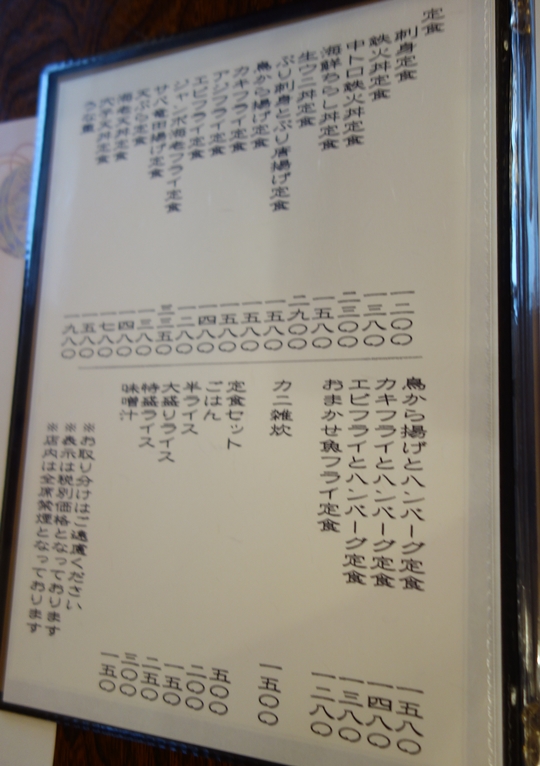 定食
刺身定食 一二〇〇
鉄火丼定食 一三八〇
中トロ鉄火丼定食 二三〇〇
海鮮ちらし丼定食 一五八〇
生ウニ丼定食 二九〇〇
ぶり刺身とぶり唐揚げ定食 一五八〇
鳥から揚げ定食 一五八〇
カキフライ定食 一五八〇
アジフライ定食 一四八〇
エビフライ定食 一二八〇
ジャンボ海老フライ定食 三三五〇
サバ竜田揚げ定食 一三八〇
天ぷら定食 一四八〇
海老天丼定食 一七八〇
穴子天丼定食 一五八〇
うな重 一九八〇
鳥から揚げとハンバーグ定食 一五八〇
カキフライとハンバーグ定食 一四八〇
エビフライとハンバーグ定食 一三八〇
おまかせ魚フライ定食 一二八〇
カニ雑炊 一五〇〇
定食セット 五〇〇
ごはん 二〇〇
半ライス 一五〇
大盛りライス 二五〇
特盛ライス 三〇〇
味噌汁 一五〇
※お取り分けはご遠慮ください
※表示は税別価格となっております
※店内は全席禁煙となっております